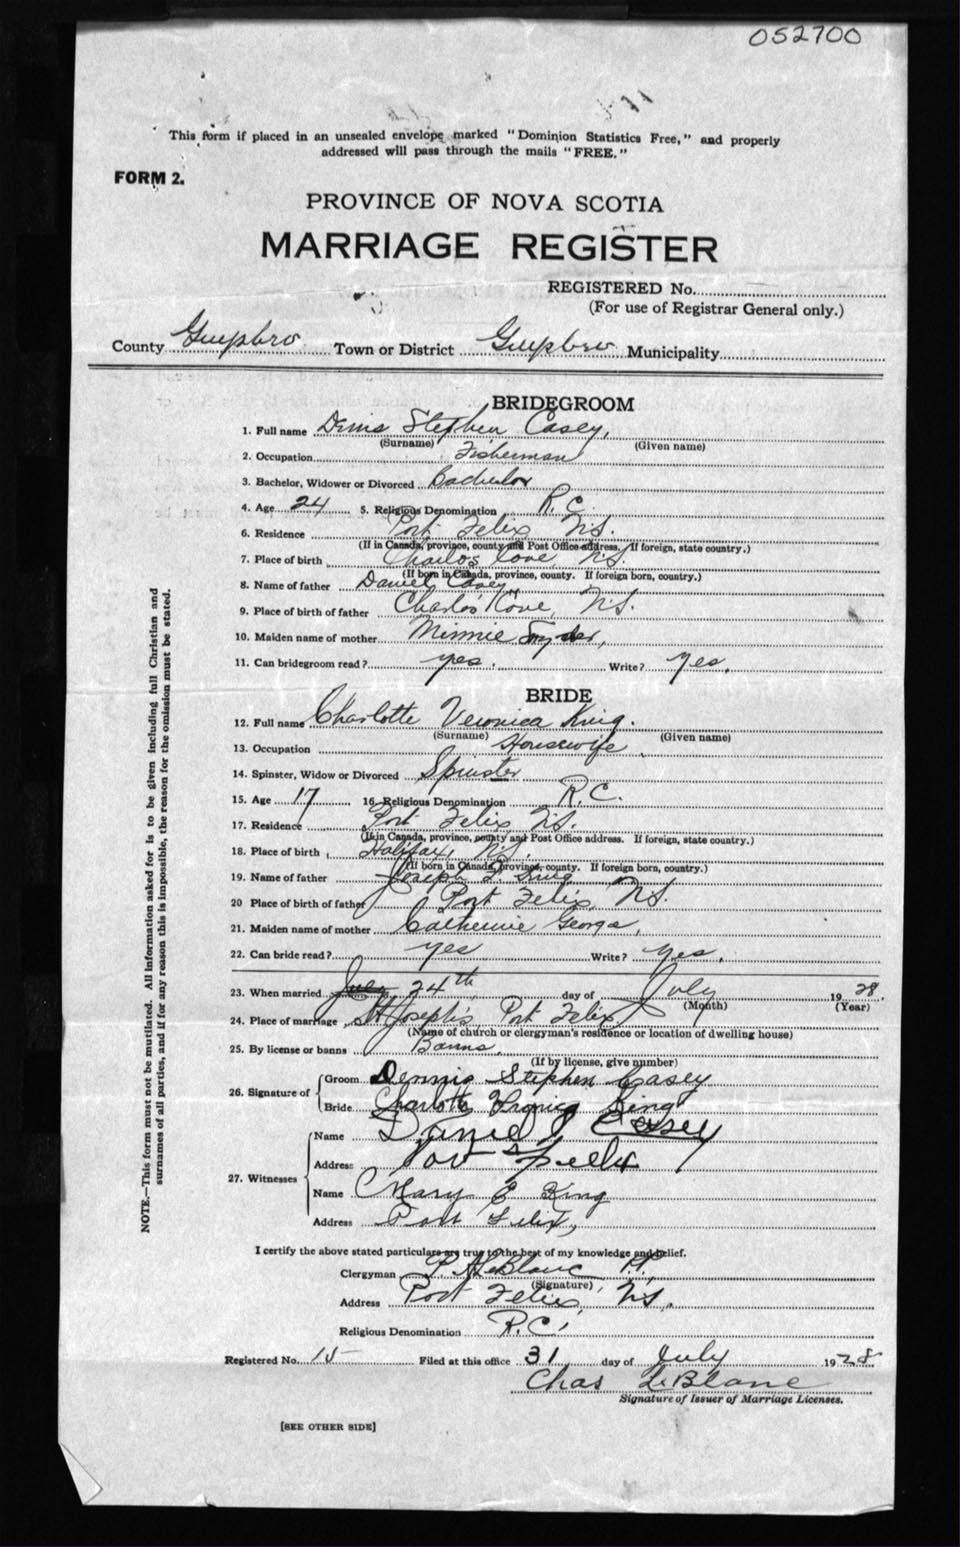 052700
This form if placed in an unsealed envelope marked "Dominion Statistics Free," and properly
addressed will pass through the mails "FREE."
FORM 2.
PROVINCE OF NOVA SCOTIA
MARRIAGE REGISTER
REGISTERED No.
(For use of Registrar General only.)
County Guysboro Town or District Guysboro Municipality
BRIDEGROOM
1. Full name Denis Stephen Casey,
(Surname) (Given name)
2. Occupation Fisherman
3. Bachelor, Widower or Divorced Bachelor
4. Age 24 5. Religious Denomination R.C.
6. Residence Port Felix N.S.
(If in Canada, province, county and Post Office address. If foreign, state country.)
7. Place of birth Charlos Cove, N.S.
(If born in Canada, province, county. If foreign born, country.)
8. Name of father Daniel Casey
9. Place of birth of father Charlos Kove, N.S.
10. Maiden name of mother Minnie Snyder,
11. Can bridegroom read? yes. Write? Yes.
BRIDE
12. Full name Charlotte Veronica King.
(Surname) (Given name)
13. Occupation Housewife
14. Spinster, Widow or Divorced Spinster
15. Age 17 16. Religious Denomination R.C.
17. Residence Port Felix N.S.
(If in Canada, province, county and Post Office address. If foreign, state country.)
18. Place of birth Halifax, N.S.
(If born in Canada, province, county. If foreign born, country.)
19. Name of father Joseph L. King
20 Place of birth of father Port Felix, N.S.
21. Maiden name of mother Catherine George,
22. Can bride read? yes Write? Yes.
23. When married July 24th day of July 1928.
(Month) (Year)
24. Place of marriage St Joseph's Port Felix
(Name of church or clergyman's residence or location of dwelling house)
25. By license or banns Banns.
(If by license, give number)
26. Signature of Groom Dennis Stephen Casey
Bride Charlotte Vronica King
27. Witnesses Name Daniel J Casey
Address Port Felix
Name Mary E King
Address Port Felix,
I certify the above stated particulars are true to the best of my knowledge and belief.
Clergyman LeBlanc P.P.
(Signature)
Address Port Felix, N.S.
Religious Denomination R.C.
Registered No. 15 Filed at this office 31 day of July 1928
Chas LeBlanc
Signature of Issuer of Marriage Licenses.
[SEE OTHER SIDE]
NOTE.—This form must not be mutilated. All information asked for is to be given including full Christian and
surnames of all parties, and if for any reason this is impossible, the reason for the omission must be stated.